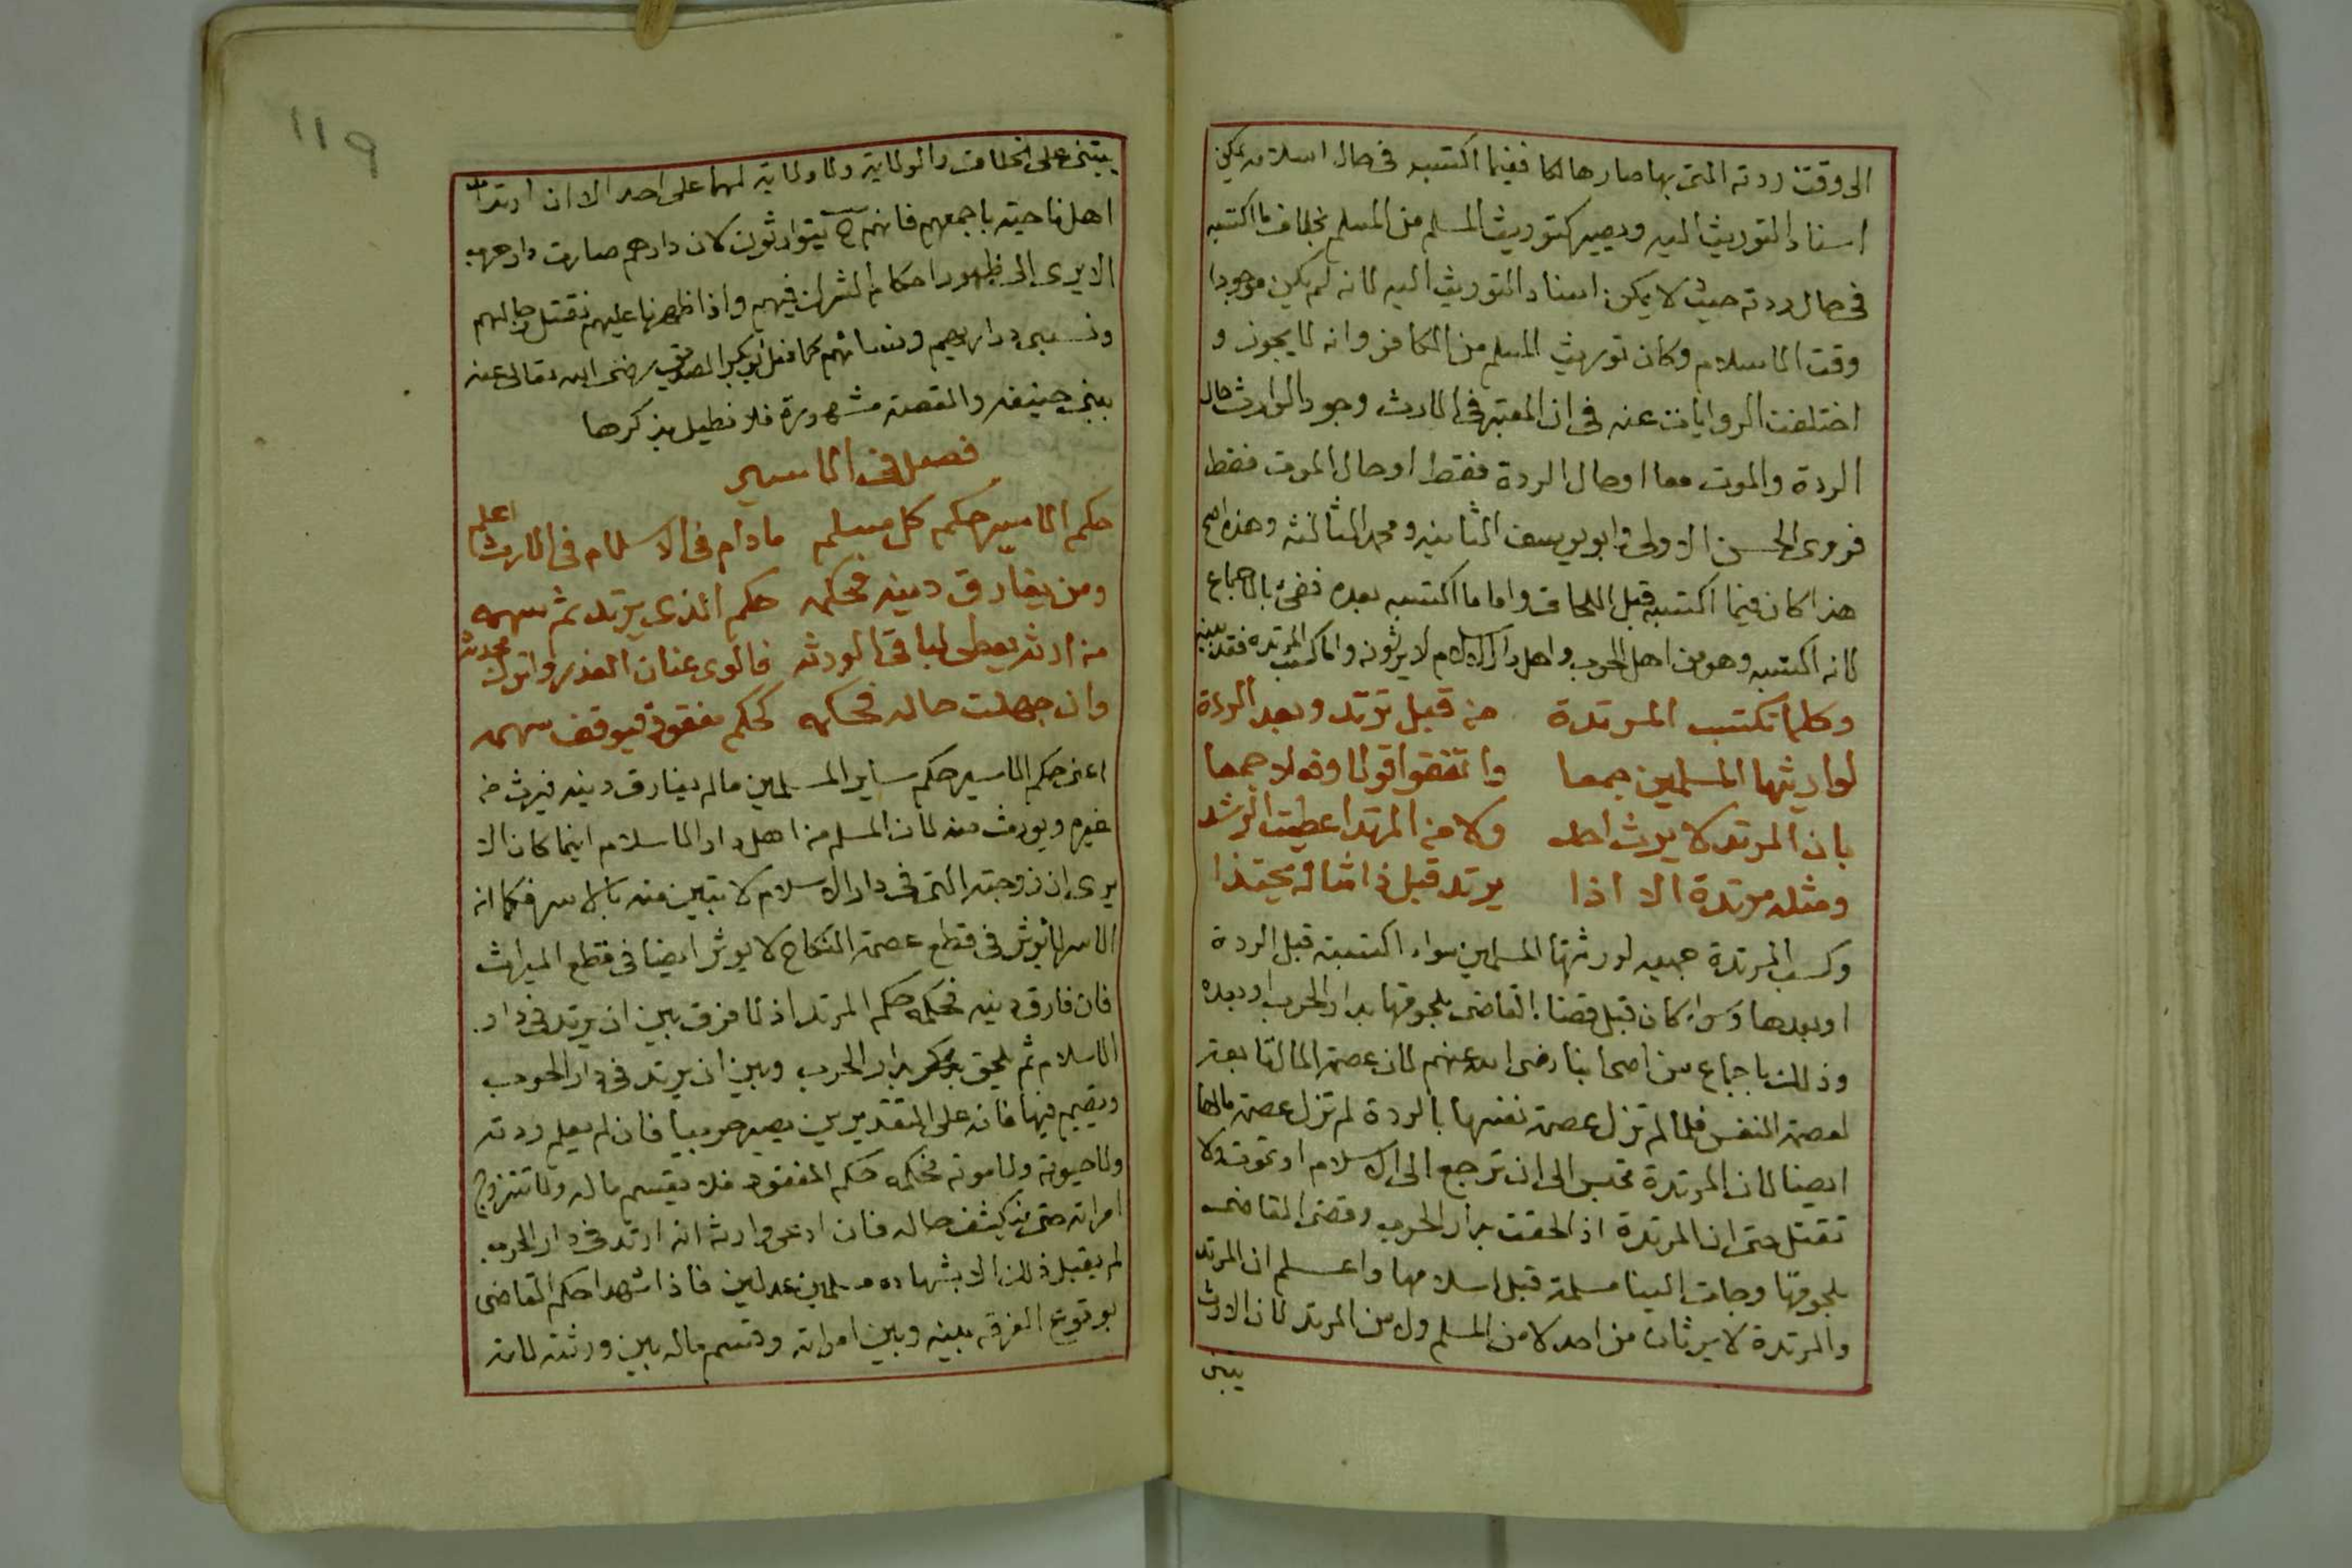 الى وقت ردته التى بها صار هالكا ففيما اكتسبه فى حال اسلامه يمكن
اسناد التوريث اليه ويصير كتوريث المسلم من المسلم بخلاف ما اكتسبه
فى حال ردته حيث لا يمكن اسناد التوريث اليه لانه لم يكن موجودا
وقت الاسلام وكان توريث المسلم من الكافر وانه لا يجوز و
اختلفت الروايات عنه فى ان المعتبر فى الارث وجود الوارث حال
الردة والموت معا او حال الردة فقط او حال الموت فقط
فروى الحسن الاولى وابو يوسف الثانيه ومحمد الثالثه وهذه اصح
هذا كان فيما اكتسبه قبل اللحاق واما ما اكتسبه بعده ففئ بالاجماع
لانه اكتسبه وهو من اهل الحرب واهل دار الاسلام لا يرثونه واما كسب المرتده فقد بينه
وكلما تكتسب المرتدة من قبل ترتد وبعد الردة
لوارثيها المسلمين جمعا واتفقوا قولا وفعلا جمعا
بان المرتد لا يرث احد ولا من المرتد اعطيت الرشد
ومثله مرتدة الا اذا يرتد قبل ذا مثاله يحتذا
وكسب المرتدة جميعه لورثتها المسلمين سواء اكتسبته قبل الردة
او بعدها وسواء كان قبل قضاء القاضى بلحوقها بدار الحرب او بعده
وذلك باجماع من اصحابنا رضى الله عنهم لان عصمة المال تابعة
لعصمة النفس فلما لم تزل عصمة نفسها بالردة لم تزل عصمة مالها
ايضا لان المرتدة تحبس الى ان ترجع الى الاسلام او تموت ولا
تقتل حتى ان المرتدة اذا لحقت بدار الحرب وقضى القاضى
بلحوقها وجات الينا مسلمة قبل اسلامها واعلم ان المرتد
والمرتدة لا يرثان من احد لا من المسلم ولا من المرتد لان الارث
يبتنى
119
يبتنى على الخلافة والولاية ولا ولاية لهما على احد الا ان ارتد
اهل ناحيته باجمعهم فانهم ح يتوارثون لان دارهم صارت دار حرب
الا يرى الى ظهور احكام الشرك فيهم واذا ظهرنا عليهم نقتل رجالهم
ونسبى ذراريهم ونساءهم كما فعل ابو بكر الصديق رضى الله تعالى عنه
ببنى حنيفه والقصة مشهورة فلا نطيل بذكرها
فصل فى الاسير
حكم الاسير حكم كل مسلم ما دام فى الاسلام فى الارث اعلم
ومن يفارق دينه فحكمه حكم الذى يرتد ثم سهمه
من ارثه يعطى لباقى الورثه فالوى عنان العذر واترك محدثه
وان جهلت حاله فحكمه كحكم مفقود فيوقف سهمه
اعنى حكم الاسير حكم ساير المسلمين ما لم يفارق دينه فيرث من
غيره ويورث منه لان المسلم من اهل دار الاسلام اينما كان الا
يرى ان زوجته التى فى دار الاسلام لا تبين منه بالاسر فكما ان
الاسر لا يؤثر فى قطع عصمة النكاح لا يوثر ايضا فى قطع الميراث
فان فارق دينه فحكمه حكم المرتد اذ لا فرق بين ان يرتد فى دار
الاسلام ثم يلحق بدار الحرب وبين ان يرتد فى دار الحرب
ويقيم فيها فانه على التقديرين يصير حربيا فان لم يعلم ردته
ولا حيوته ولا موته فحكمه حكم المفقود فلا يقسم ماله ولا تتزوج
امراته حتى ينكشف حاله فان ادعى وارثه انه ارتد فى دار الحرب
لم يقبل ذلك الا بشهاده مسلمين عدلين فاذا شهدا حكم القاضى
بوقوع الفرقه بينه وبين امراته وقسم ماله بين ورثته لانه